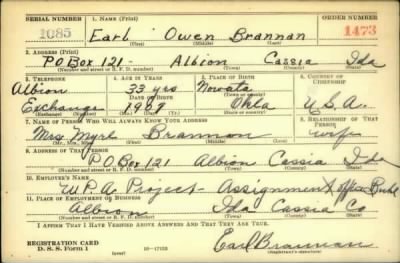 SERIAL NUMBER 1. NAME (Print) ORDER NUMBER
1085 Earl Owen Brannan 1473
(First) (Middle) (Last)
2. ADDRESS (Print)
P O Box 121 - Albion Cassia Ida
(Number and street or R. F. D. number) (Town) (County) (State)
3. TELEPHONE 4. AGE IN YEARS 5. PLACE OF BIRTH 6. COUNTRY OF CITIZENSHIP
Albion 33 yrs Nowata
DATE OF BIRTH
Exchange 1907 Okla U.S.A.
7. NAME OF PERSON WHO WILL ALWAYS KNOW YOUR ADDRESS 8. RELATIONSHIP OF THAT PERSON
Mrs Myrl Brannon wife
(Mr., Mrs., Miss) (First) (Middle) (Last)
9. ADDRESS OF THAT PERSON
P O Box 121 Albion Cassia Ida
(Number and street or R. F. D. number) (Town) (County) (State)
10. EMPLOYER'S NAME
W.P.A. Project - Assignment office
11. PLACE OF EMPLOYMENT OR BUSINESS
Albion Ida Cassia Co
(Number and street or R. F. D. number) (Town) (County) (State)
I AFFIRM THAT I HAVE VERIFIED ABOVE ANSWERS AND THAT THEY ARE TRUE.
REGISTRATION CARD
D. S. S. Form 1 16-17105 (over) Earl Brannan
(Registrant's signature)